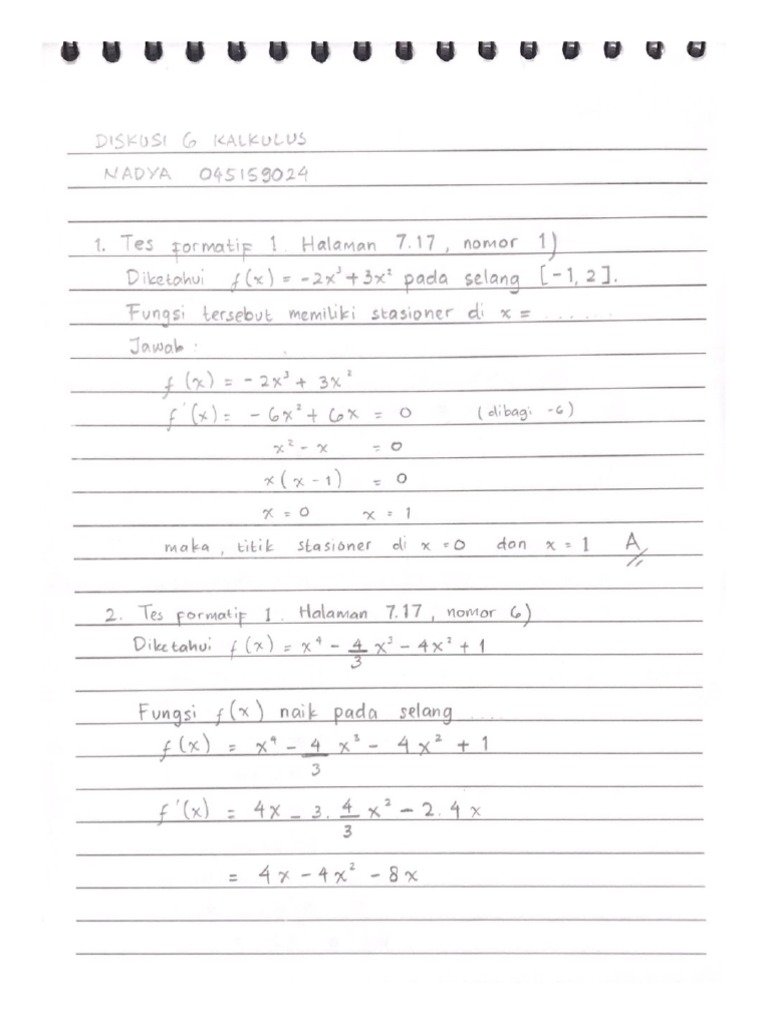 DISKUSI 6 KALKULUS
NADYA 045159024
1. Tes formatif 1. Halaman 7.17, nomor 1)
Diketahui f(x) = -2x³ + 3x² pada selang [-1, 2].
Fungsi tersebut memiliki stasioner di x = ......
Jawab :
f (x) = - 2x³ + 3x²
f'(x) = - 6x² + 6x = 0 (dibagi -6)
x² - x = 0
x (x - 1) = 0
x = 0 x = 1
maka, titik stasioner di x = 0 dan x = 1 A
2. Tes formatif 1. Halaman 7.17, nomor 6)
Diketahui f(x) = x⁴ - 4/3 x³ - 4x² + 1
Fungsi f(x) naik pada selang ....
f(x) = x⁴ - 4/3 x³ - 4x² + 1
f'(x) = 4x - 3. 4/3 x² - 2. 4x
= 4x - 4x² - 8x